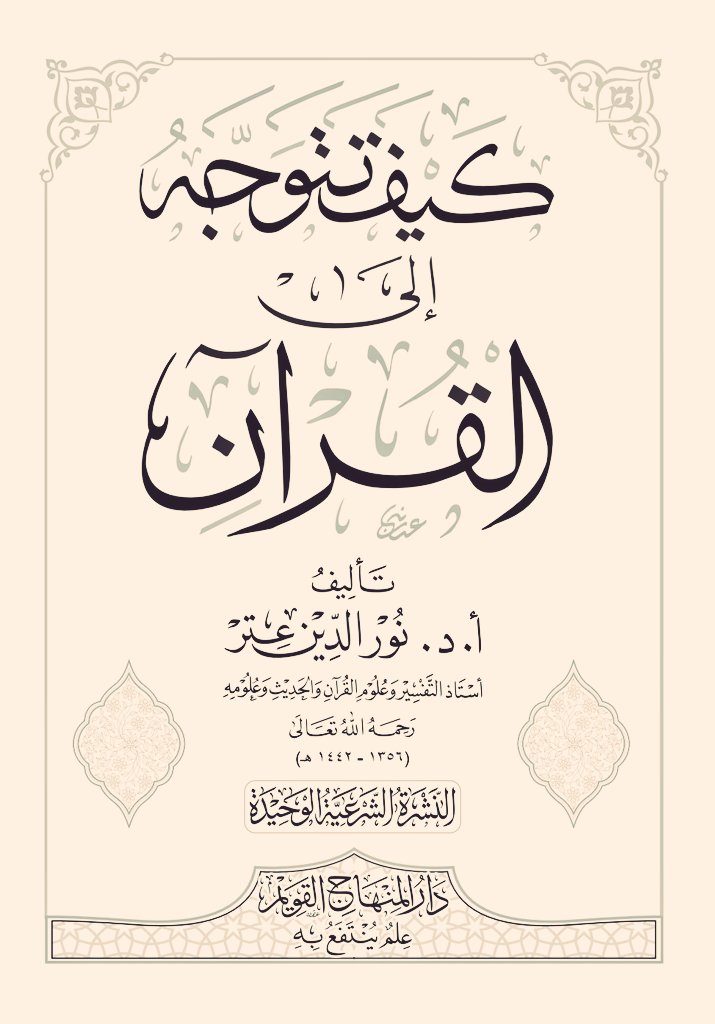 كَيفَ تتوَجَّهُ
إلى
القُرآنِ
تَأليفُ
أ. د. نُوْر الدِّيْن عِتِر
أُسْتَاذ التَّفْسِيْر وَعُلُوْمِ القُرْآنِ وَالحَدِيْثِ وَعُلُوْمِهِ
رَحِمَهُ اللهُ تَعَالَى
(١٣٥٦ - ١٤٤٢ هـ)
النَّشْرَةُ الشَّرْعِيَّةُ الوَحِيْدَة
دَارُ المِنْهَاجِ القَوِيْمِ
عِلمٌ يُنْتَفَعُ بِهِ